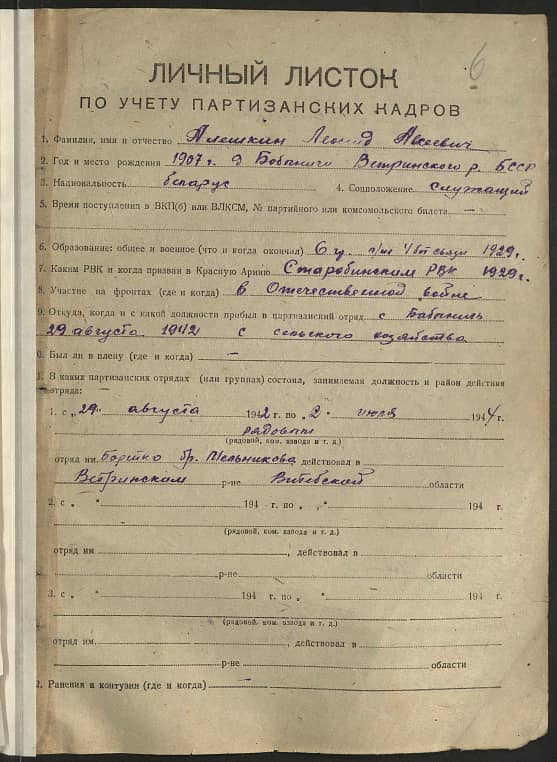 6
ЛИЧНЫЙ ЛИСТОК
ПО УЧЕТУ ПАРТИЗАНСКИХ КАДРОВ
1. Фамилия, имя и отчество Плешкин Леонид
2. Год и место рождения 1907 г. д Бобыничи Ветринского р. БССР
3. Национальность беларус 4. Соцположение служащий
5. Время поступления в ВКП(б) или ВЛКСМ, № партийного или комсомольского билета —
6. Образование: общее и военное (что и когда окончил) 6 гр. связи 1929г.
7. Каким РВК и когда призван в Красную Армию Старобинским РВК 1929г.
8. Участие на фронтах (где и когда) в Отечественной войне
9. Откуда, когда и с какой должности прибыл в партизанский отряд с
29 августа 1942 с сельского хозяйства
0. Был ли в плену (где и когда) —
1. В каких партизанских отрядах (или группах) состоял, занимаемая должность и район действия
отряда:
1. с „29" августа 1942 г. по „2" июля 1944 г.
рядовым
(рядовой, ком. взвода и т. д.)
отряд им. бр. Мельникова действовал в
Ветринском р-не Витебской области
2. с „ " 194 г. по „ " 194 г.
(рядовой, ком. взвода и т. д.)
отряд им , действовал в
р-не области
3. с „ " 194 г. по „ " 194 г.
(рядовой, ком. взвода и т. д.)
отряд им. , действовал в
р-не области
2. Ранения и контузии (где и когда) —